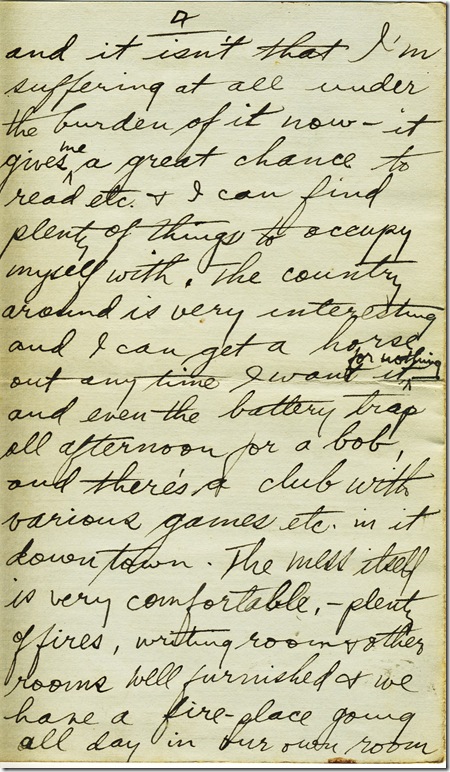 4
and it isn't that I'm
suffering at all under
the burden of it now – it
gives me a great chance to
read etc. & I can find
plenty of things to occupy
myself with. The country
around is very interesting
and I can get a horse
for nothing
out any time I want it
and even the battery trap
all afternoon for a bob,
and there's a club with
various games etc. in it
down town. The mess itself
is very comfortable, – plenty
of fires, writing room & other
rooms well furnished & we
have a fire-place going
all day in our own room